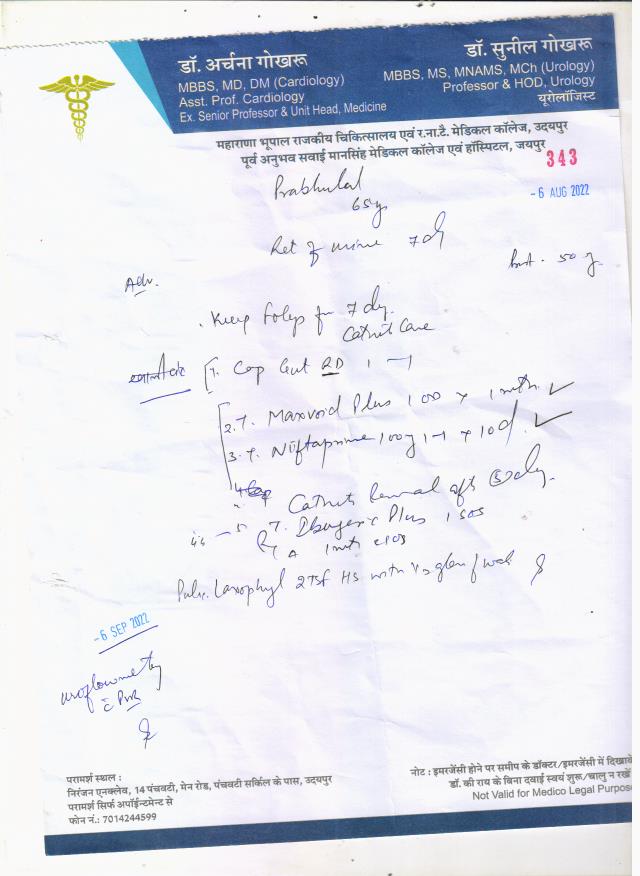 डॉ. अर्चना गोखरू
MBBS, MD, DM (Cardiology)
Asst. Prof. Cardiology
Ex. Senior Professor & Unit Head, Medicine
डॉ. सुनील गोखरू
MBBS, MS, MNAMS, MCh (Urology)
Professor & HOD, Urology
यूरोलॉजिस्ट
महाराणा भूपाल राजकीय चिकित्सालय एवं र.ना.टै. मेडिकल कॉलेज, उदयपुर
पूर्व अनुभव सवाई मानसिंह मेडिकल कॉलेज एवं हॉस्पिटल, जयपुर
343
Prabhulal
65y
- 6 AUG 2022
Ret of urine 7 d
50 g
Adv.
Keep Foleys for 7 day.
Cathet Care
1. Cap 1 - 1
2. T. Maxvoid Plus 100 x 1 mth
3. T. Niftaprime 100 1-1 x 10d
Plus 1 SOS
Pulv. Laxophyl 2 TSF HS with 1/2 glass
- 6 SEP 2022
uroflowmetry
c PVR
परामर्श स्थल :
निरंजन एनक्लेव, 14 पंचवटी, मेन रोड, पंचवटी सर्किल के पास, उदयपुर
परामर्श सिर्फ अपॉईन्टमेन्ट से
फोन नं.: 7014244599
नोट : इमरजेंसी होने पर समीप के डॉक्टर/इमरजेंसी में दिखावे
डॉ. की राय के बिना दवाई स्वयं शुरू/चालु न रखें
Not Valid for Medico Legal Purpose